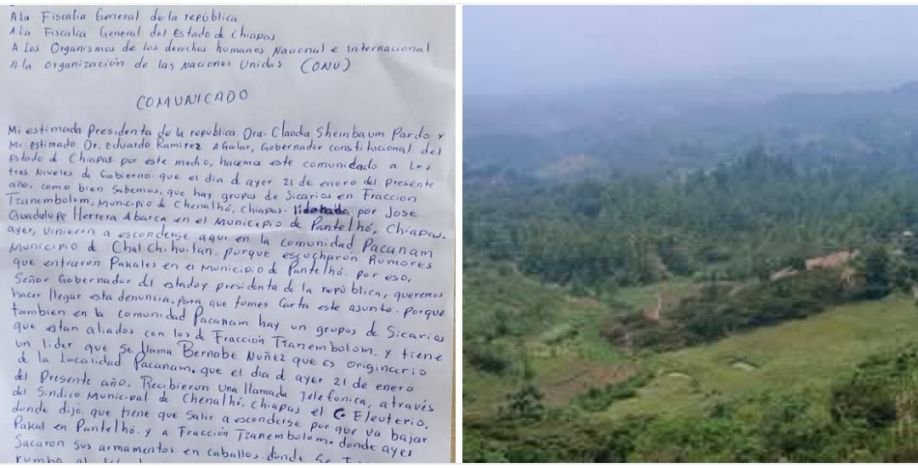 A la Fiscalia General de la república
A la Fiscalia General del Estado de Chiapas
A los Organismos de los derechos humanos Nacional e internacional
A la organización de las Naciones Unidas (ONU)
COMUNICADO
Mi estimada Presidenta de la republica Dra. Claudia Sheinbaum Pardo y
Mi estimado Dr. Eduardo Ramirez Aguilar, Gobernador constitucional del
Estado de Chiapas. por este medio, hacemos este comunicado a los
tres Niveles de Gobierno. que el dia d ayer 21 de enero del presente
año, como bien sabemos, que hay grupos de Sicarios en Fraccion
Tzanembolom, Municipio de Chenalhó, Chiapas. liderado por Jose
Guadalupe Herrera Abarca en el Municipio de Pantelhó, Chiapas.
ayer, vinieron a esconderse aqui en la comunidad Pacanam
Municipio de Chalchihuitan. porque escucharon Rumores
que entraron Pakales en el municipio de Pantelhó. por eso,
Señor Gobernador del estado y presidenta de la república, queremos
hacer llegar esta denuncia, para que tomes Carta este asunto. Porque
tambien en la comunidad Pacanam hay un grupos d Sicarios
que estan aliados con los de Fracción Tzanembolom. y tiene
un lider que se llama Bernabe Nuñez que es originario
de la Localidad Pacanam. que el dia d ayer 21 de enero
del Presente año. Recibieron una llamada Telefonica, através
del Sindico Municipal de Chenalhó, Chiapas el C Eleuterio.
dunde dijo, que tiene que Salir a esconderse por que va bajar
Pakal en Pantelhó. y a Fracción Tzanembolom. donde ayer
Sacaron sus armamentos en caballos. donde Se
rumbo al